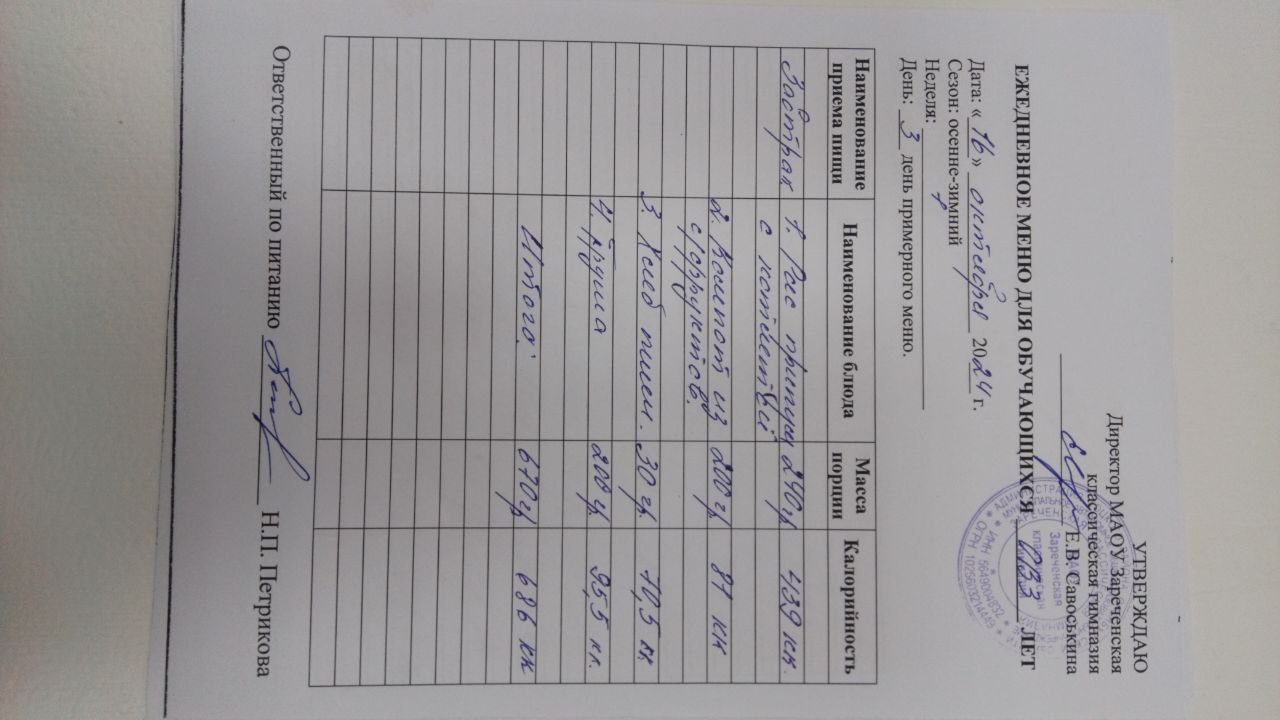 УТВЕРЖДАЮ
Директор МАОУ Зареченская
классическая гимназия
Е.В. Савоськина
ЕЖЕДНЕВНОЕ МЕНЮ ДЛЯ ОБУЧАЮЩИХСЯ ОВЗ ЛЕТ
Дата: «16» октября 2024 г.
Сезон: осенне-зимний
Неделя:
День: 3 день примерного меню.
Наименование приема пищи Наименование блюда Масса порции Калорийность
Завтрак 1. Рис припущ 240гр 439 кк.
с котлетой
2. Компот из 200 гр 81 кк
с/фруктов.
3. Хлеб пшен. 30 гр. 70,5 кк
4. Груша 200 гр. 95,5 кк.
Итого: 670гр 686 кк
Ответственный по питанию Н.П. Петрикова
Зареченская
ИНН 5649004832
ОГРН 1025603214449